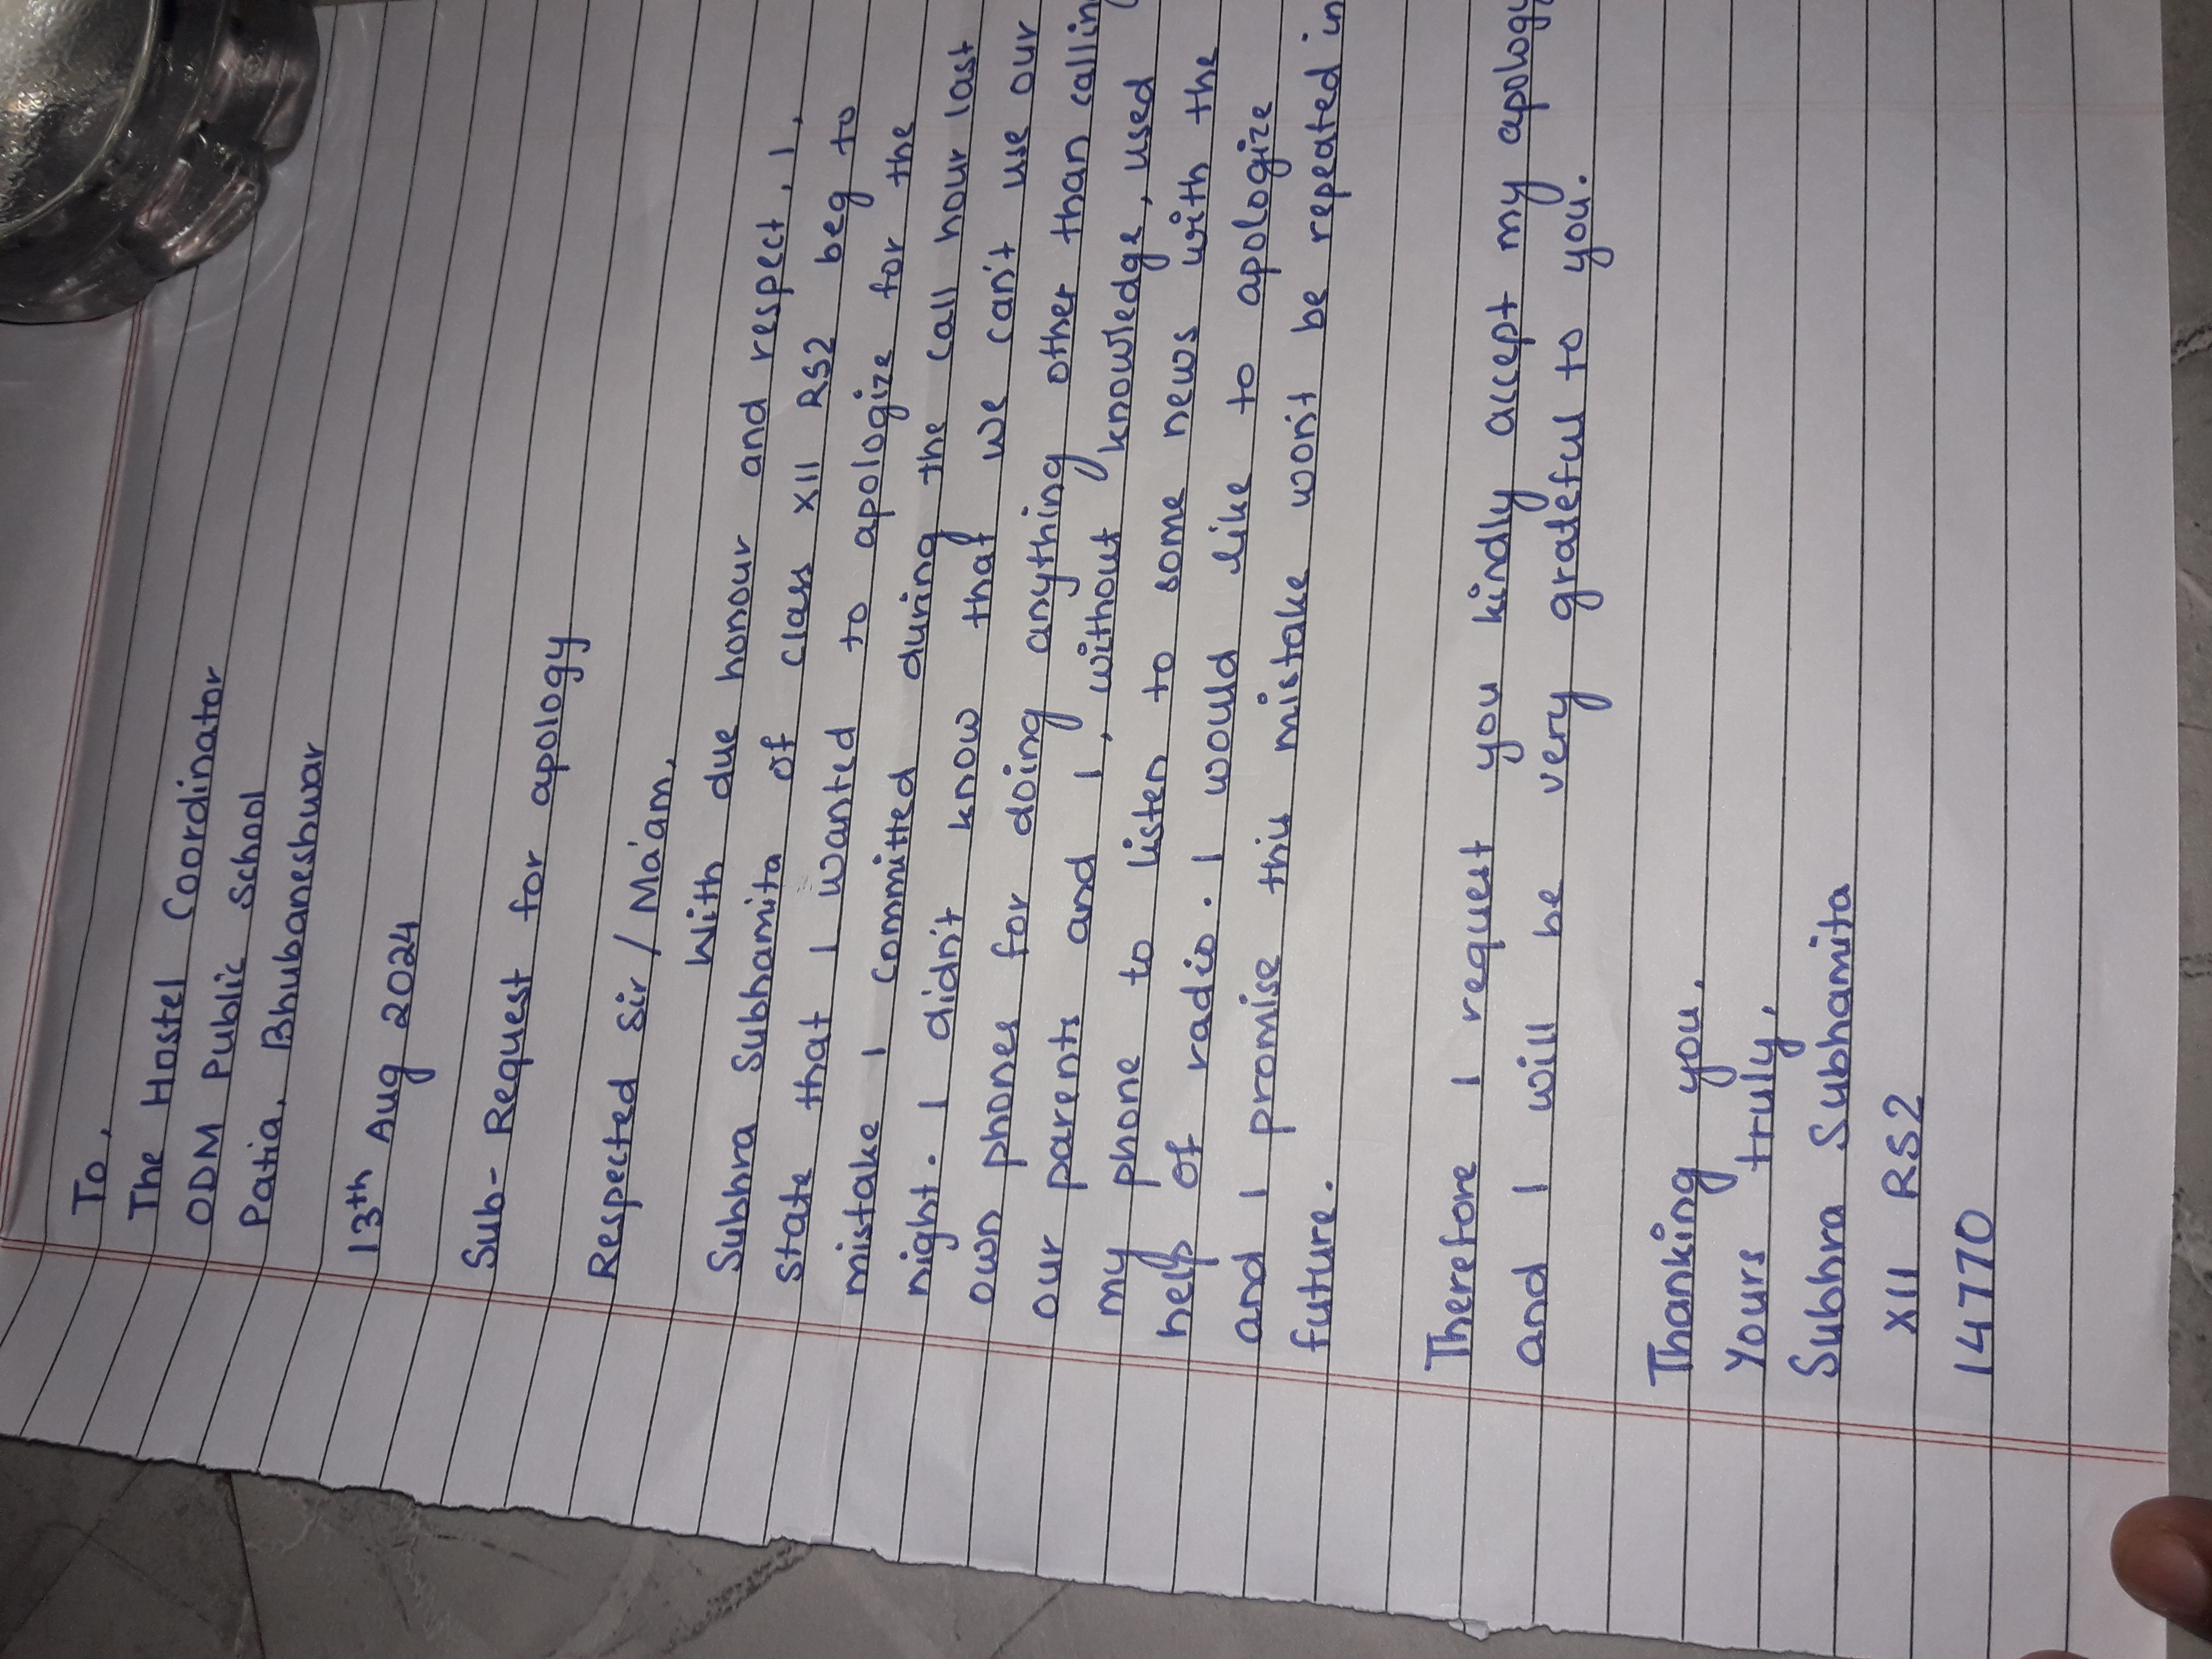 To,
The Hostel Coordinator
ODM Public School
Patia, Bhubaneshwar
13th Aug 2024
Sub- Request for apology
Respected Sir / Ma'am,
With due honour and respect, I,
Subhra Subhamita of class XII RS2 beg to
state that I wanted to apologize for the
mistake I committed during the call hour last
night. I didn't know that we can't use our
own phones for doing anything other than calling
our parents and I, without knowledge, used
my phone to listen to some news with the
help of radio. I would like to apologize
and I promise this mistake won't be repeated in
future.
Therefore I request you kindly accept my apology
and I will be very grateful to you.
Thanking you,
Yours truly,
Subhra Subhamita
XII RS2
14770